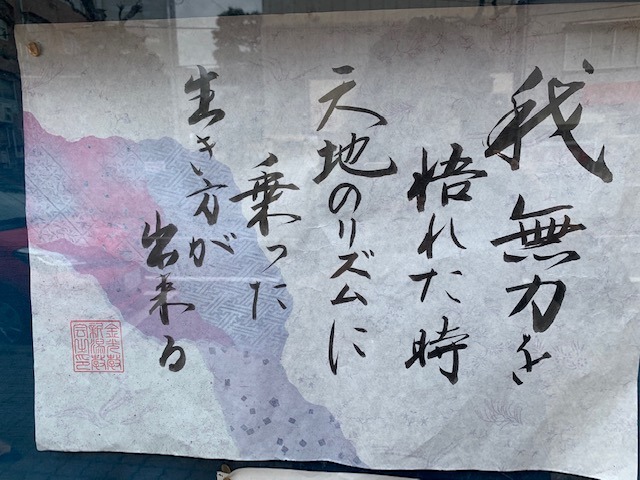 我無力を
悟れた時
天地のリズムに
乗った
生き方が
出来る